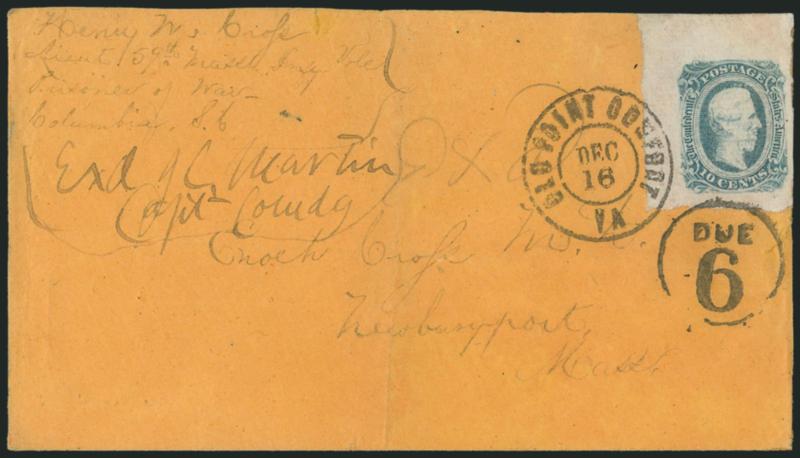 Henry W. Cross
Lieut 59th Mass. Inf Vols
Prisoner of War
Columbia, S.C
Exd J C Martin
Capt Comdg
Enoch Cross M. D.
Newburyport,
Mass.
OLD POINT COMFORT
DEC
16
VA
POSTAGE
The Confederate States America
10 CENTS
DUE
6